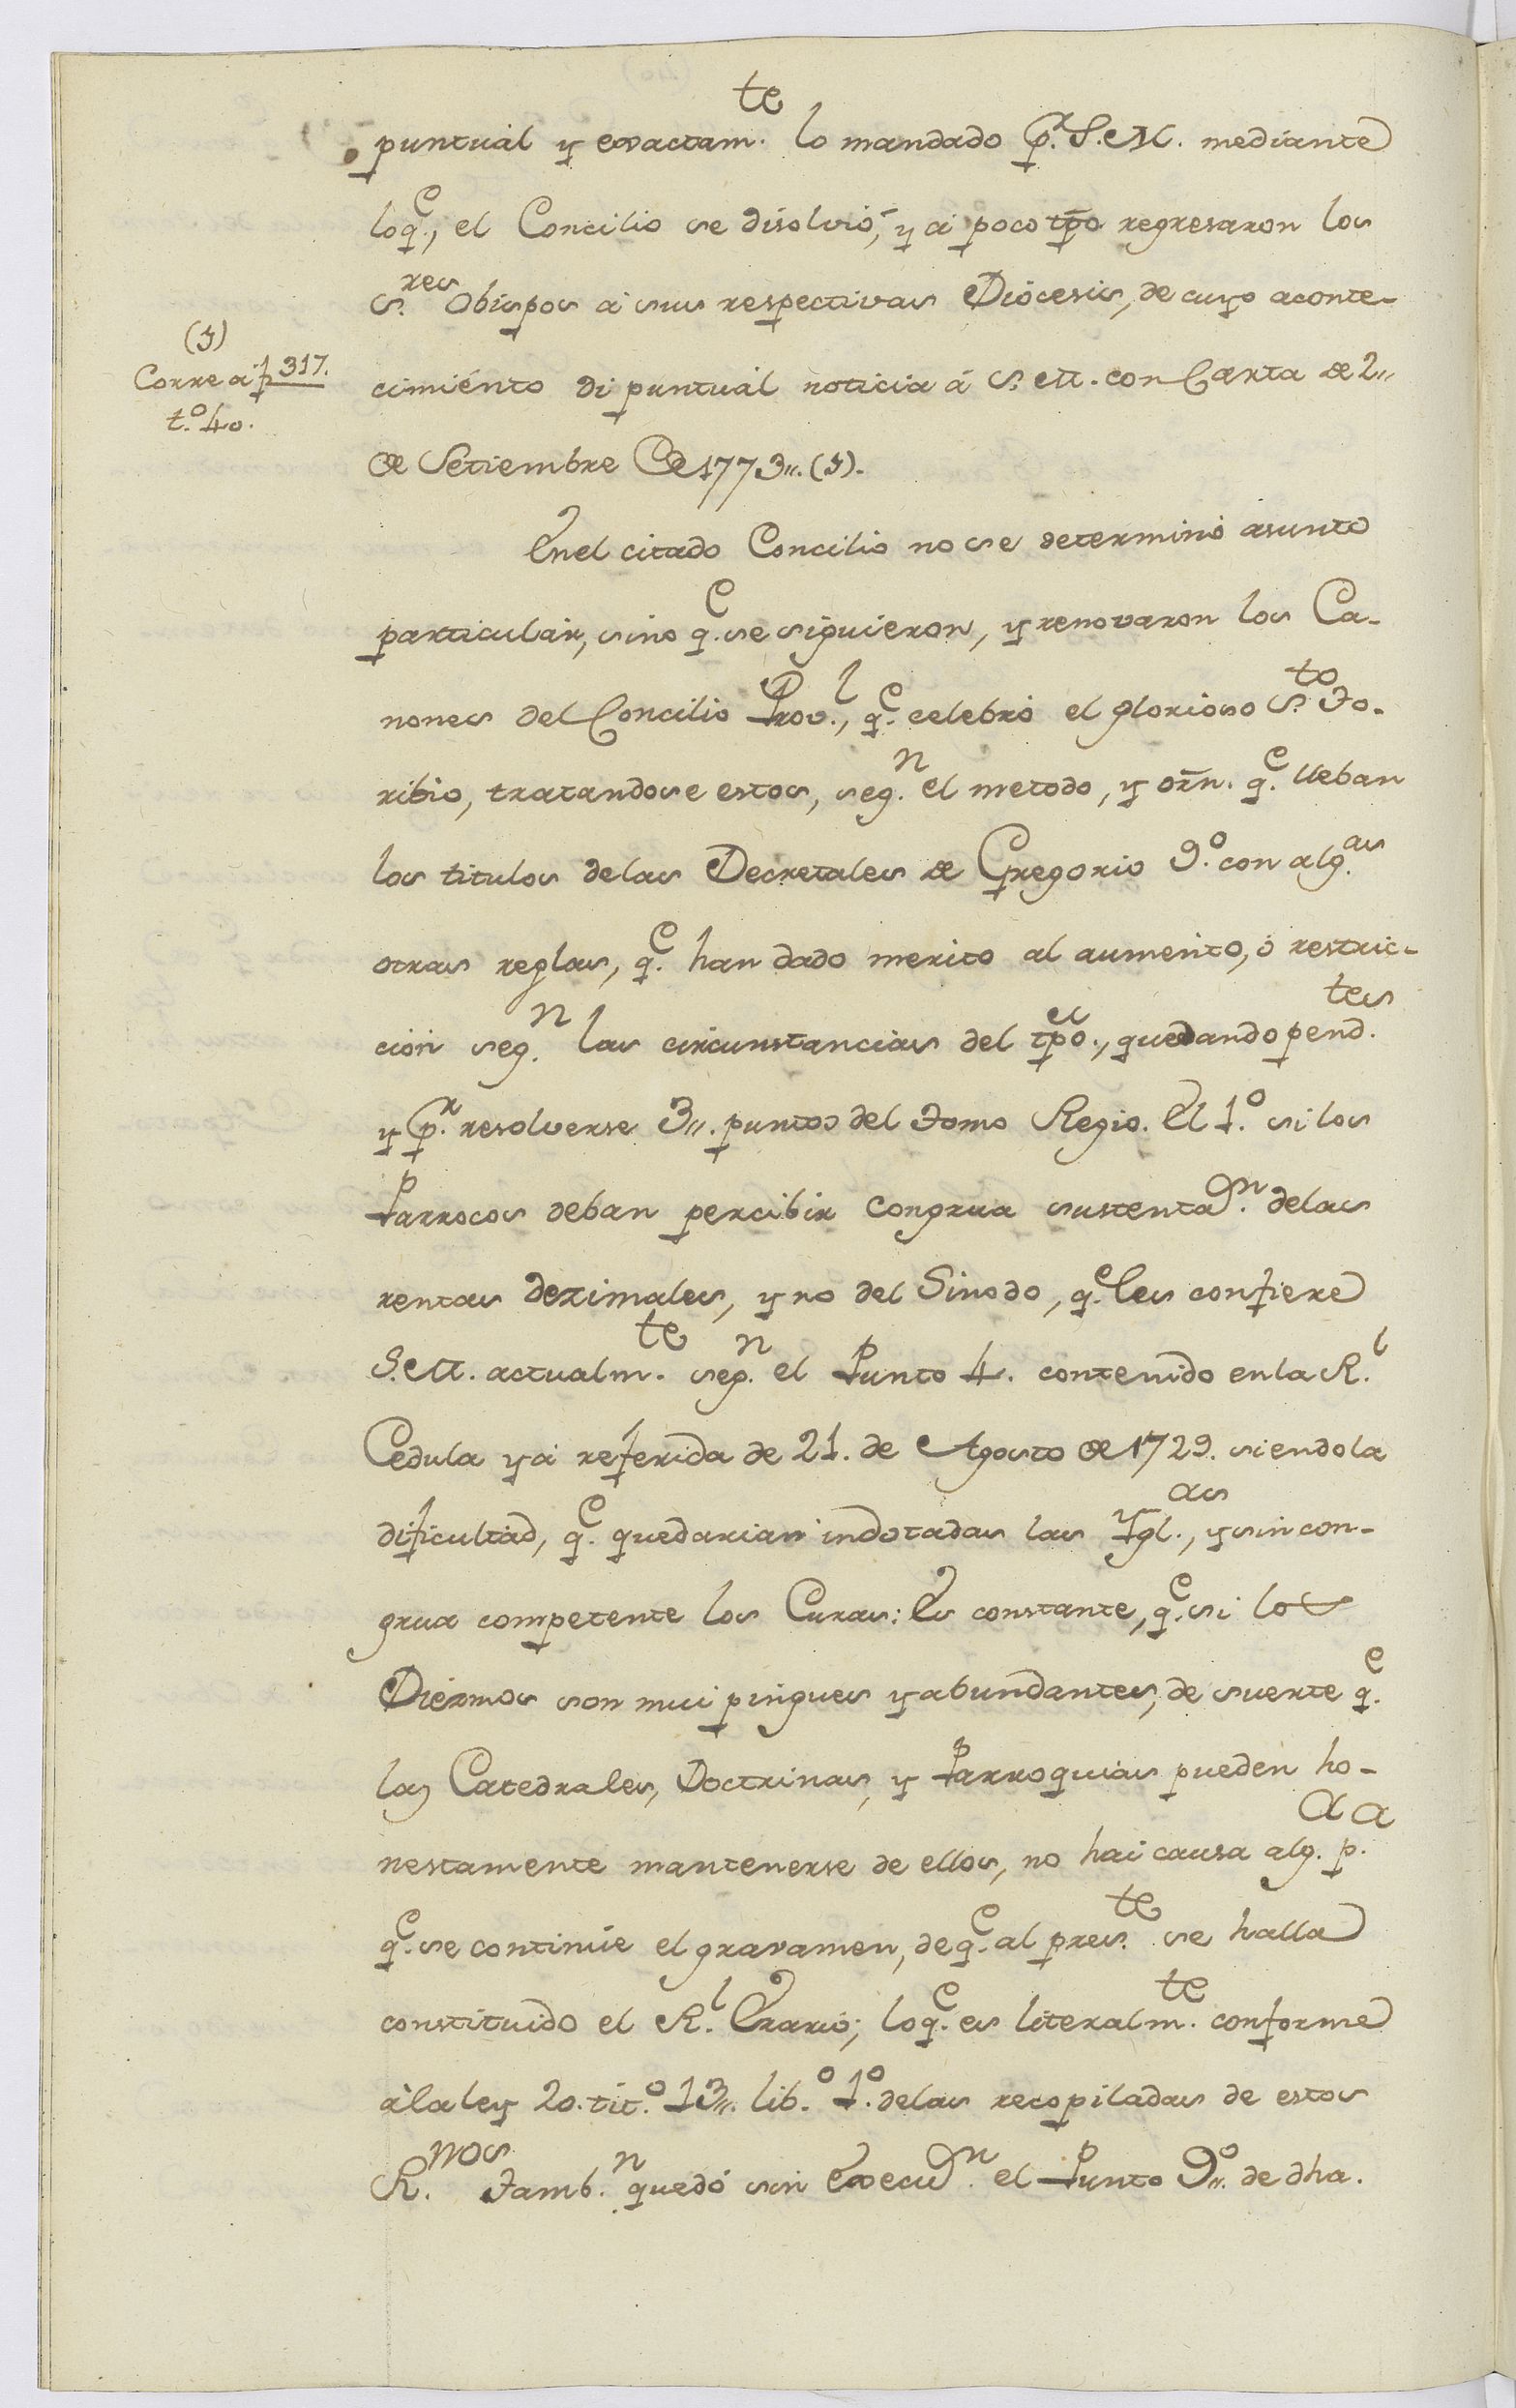 puntual y exactam.te lo mandado p.r S.M. mediante
loq.e, el Concilio se disolvió, y á poco tpo regresaron los
S.res Obispos á sus respectivas Diócesis, de cuyo aconte-
(y)
Corre á f 317.
t.o 40.
cimiento di puntual noticia á S.M. con Carta de 2,,
de Setiembre de 1773,,. (y).
Enel citado Concilio no se determinó asunto
particular, sino q.e se siguieron, y renovaron los Ca-
nones del Concilio Prov.l, q.e celebró el glorioso S.to To-
ribio, tratandose estos, seg.n el metodo, y orn. q.e lleban
los titulos delas Decretales de Gregorio 9.o con alg.as
otras reglas, q.e han dado merito al aumento, ó restric-
ción seg.n las circunstancias del tpo., quedando pend.tes
y p.r resolverse 3,,. puntos del Tomo Regio. El 1.o si los
Parrocos deban percibir congrua sustentac.n delas
rentas dezimales, y no del Sinodo, q.e les confiere
S.M. actualm.te seg.n el Punto 4. contenido enla R.l
Cedula yá referida de 21. de Agosto de 1729. siendo la
dificultad, q.e quedarian indotadas las Ygl.as, y sin con-
grua competente los Curas: Es constante, q.e si los
Diezmos son mui pingues y abundantes, de suerte q.e
las Catedrales, Doctrinas, y Parroquias pueden ho-
nestamente mantenerse de ellos, no hai causa alg.a p.a
q.e se continúe el gravamen, deq.e al pres.te se halla
constituido el R.l Erario; loq.e es literalm.te conforme
á la ley 20. tit.o 13,,. lib.o 1.o delas recopiladas de estos
R.nos Tamb.n quedó sin execuc.n el Punto 9,,.o de dha.